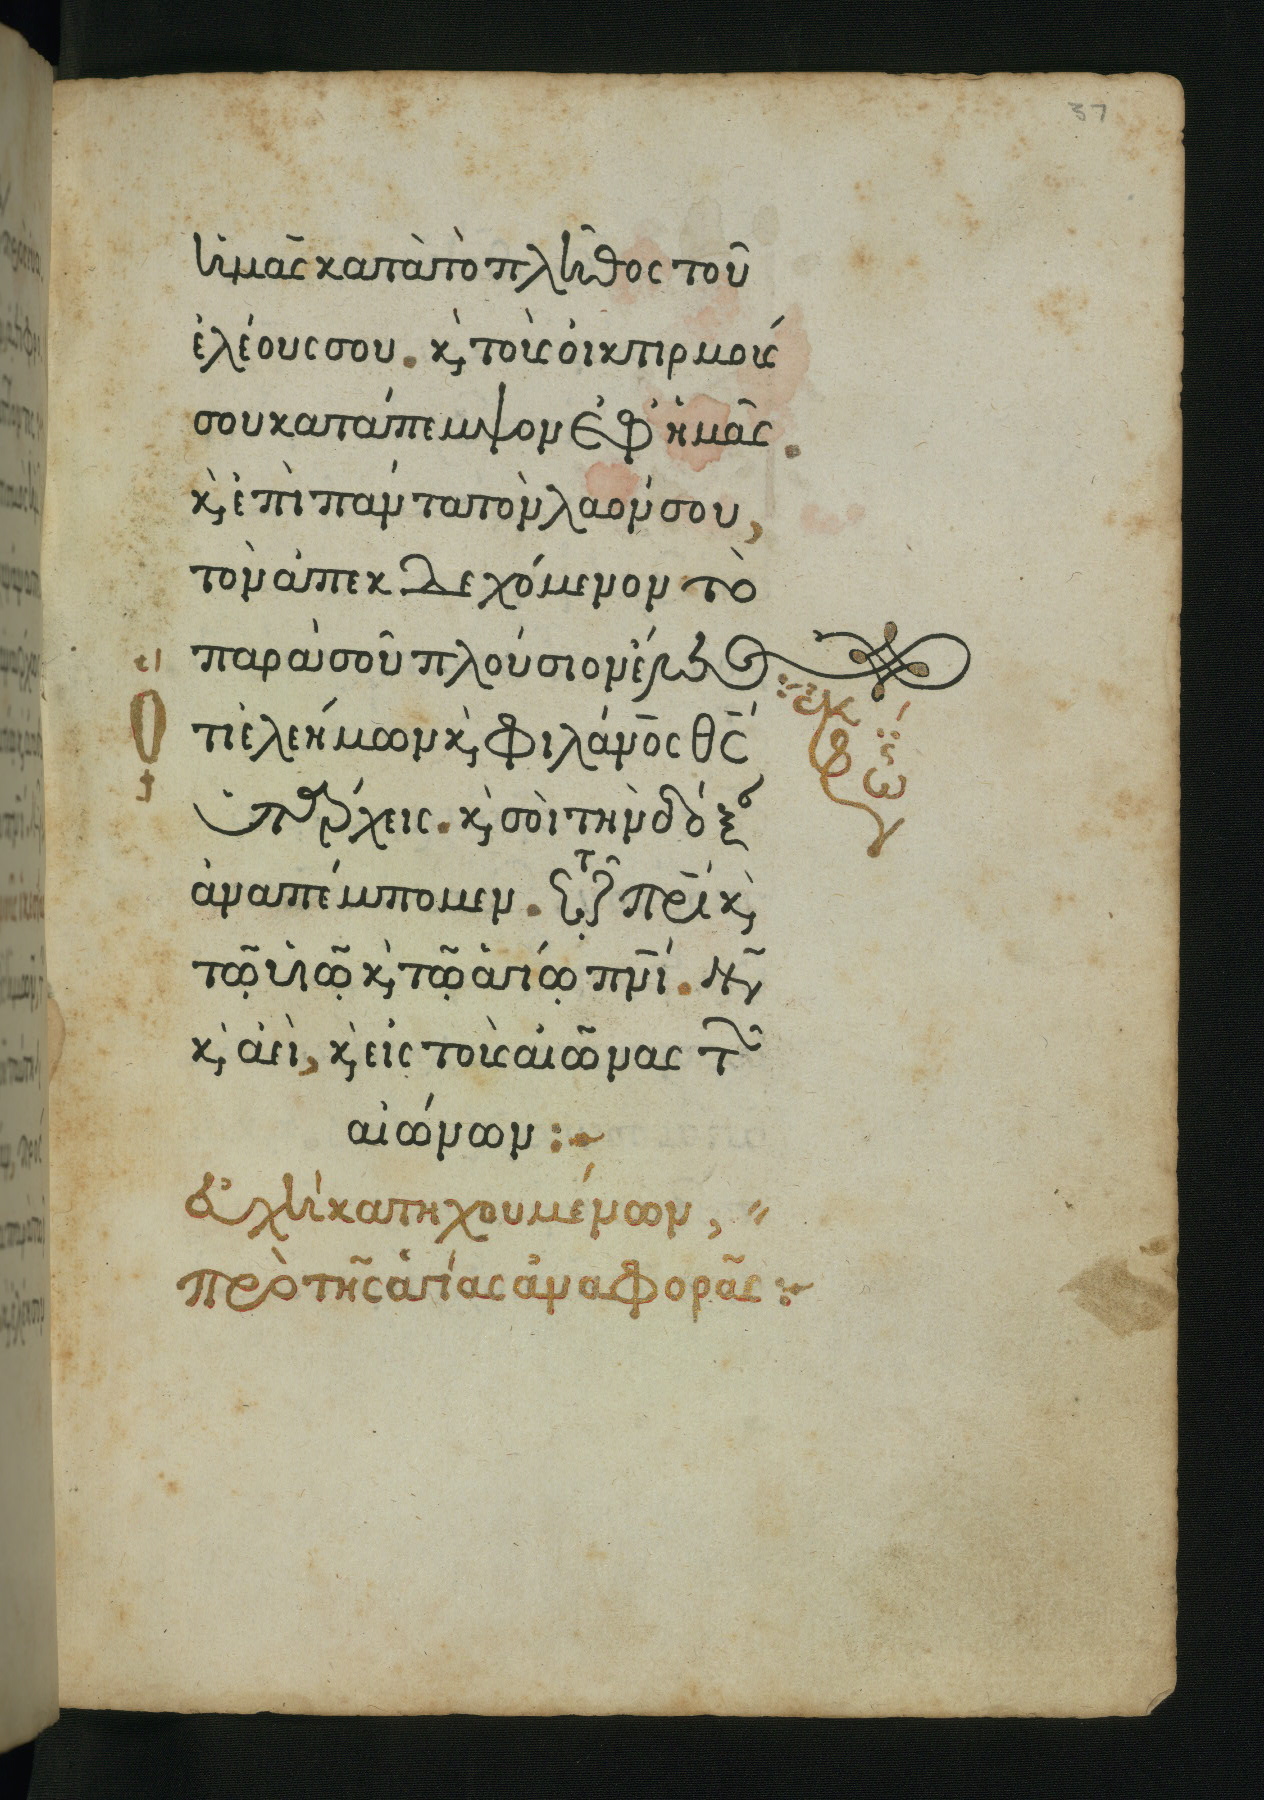 37
ἡμᾶς κατὰ τὸ πλῆθος τοῦ
ἐλέους σου. κ, τοὺς οἰκτιρμούς
σου κατάπεμψον ἐφ' ἡμᾶς.
κ, ἐπὶ πάντα τὸν λαόν σου,
τὸν ἀπεκδεχόμενον τὸ
παρὰ σοῦ πλούσιον ἔλεος
ἐκφω
ὅτι ἐλεήμων κ, φιλάνος θς
ὑπάρχεις. κ, σοὶ τὴν δόξαν
ἀναπέμπομεν. τῷ πρι κ,
τῷ υἱῷ κ, τῷ ἁγίῳ πνι. νῦν
κ, ἀεὶ, κ, εἰς τοὺς αἰῶνας τῶν
αἰώνων :~
εὐχὴ κατηχουμένων,
πρὸ τῆς ἁγίας ἀναφορᾶς :~